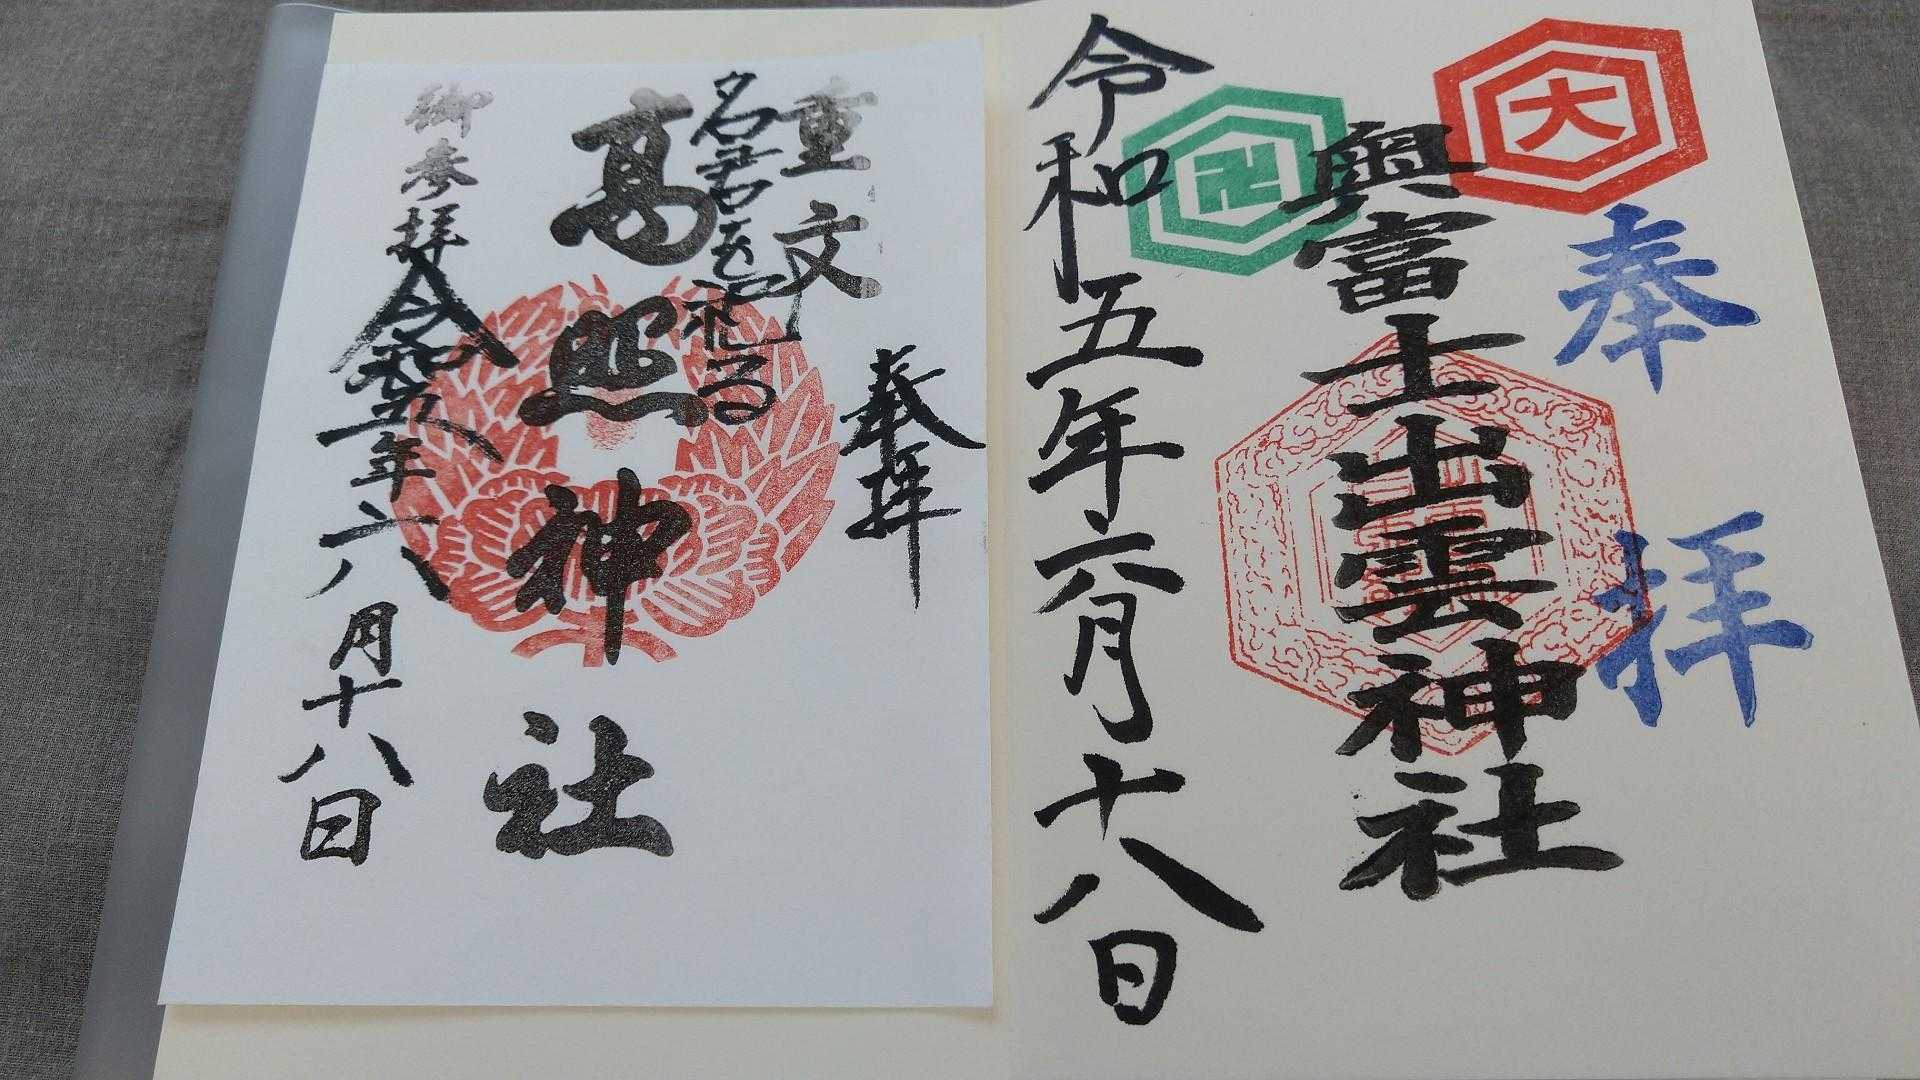 大
奉拝
奥富士出雲神社
卍
令和五年六月十八日
奉拝
重文
名君を祀る
高照神社
御参拝
令和五年六月十八日